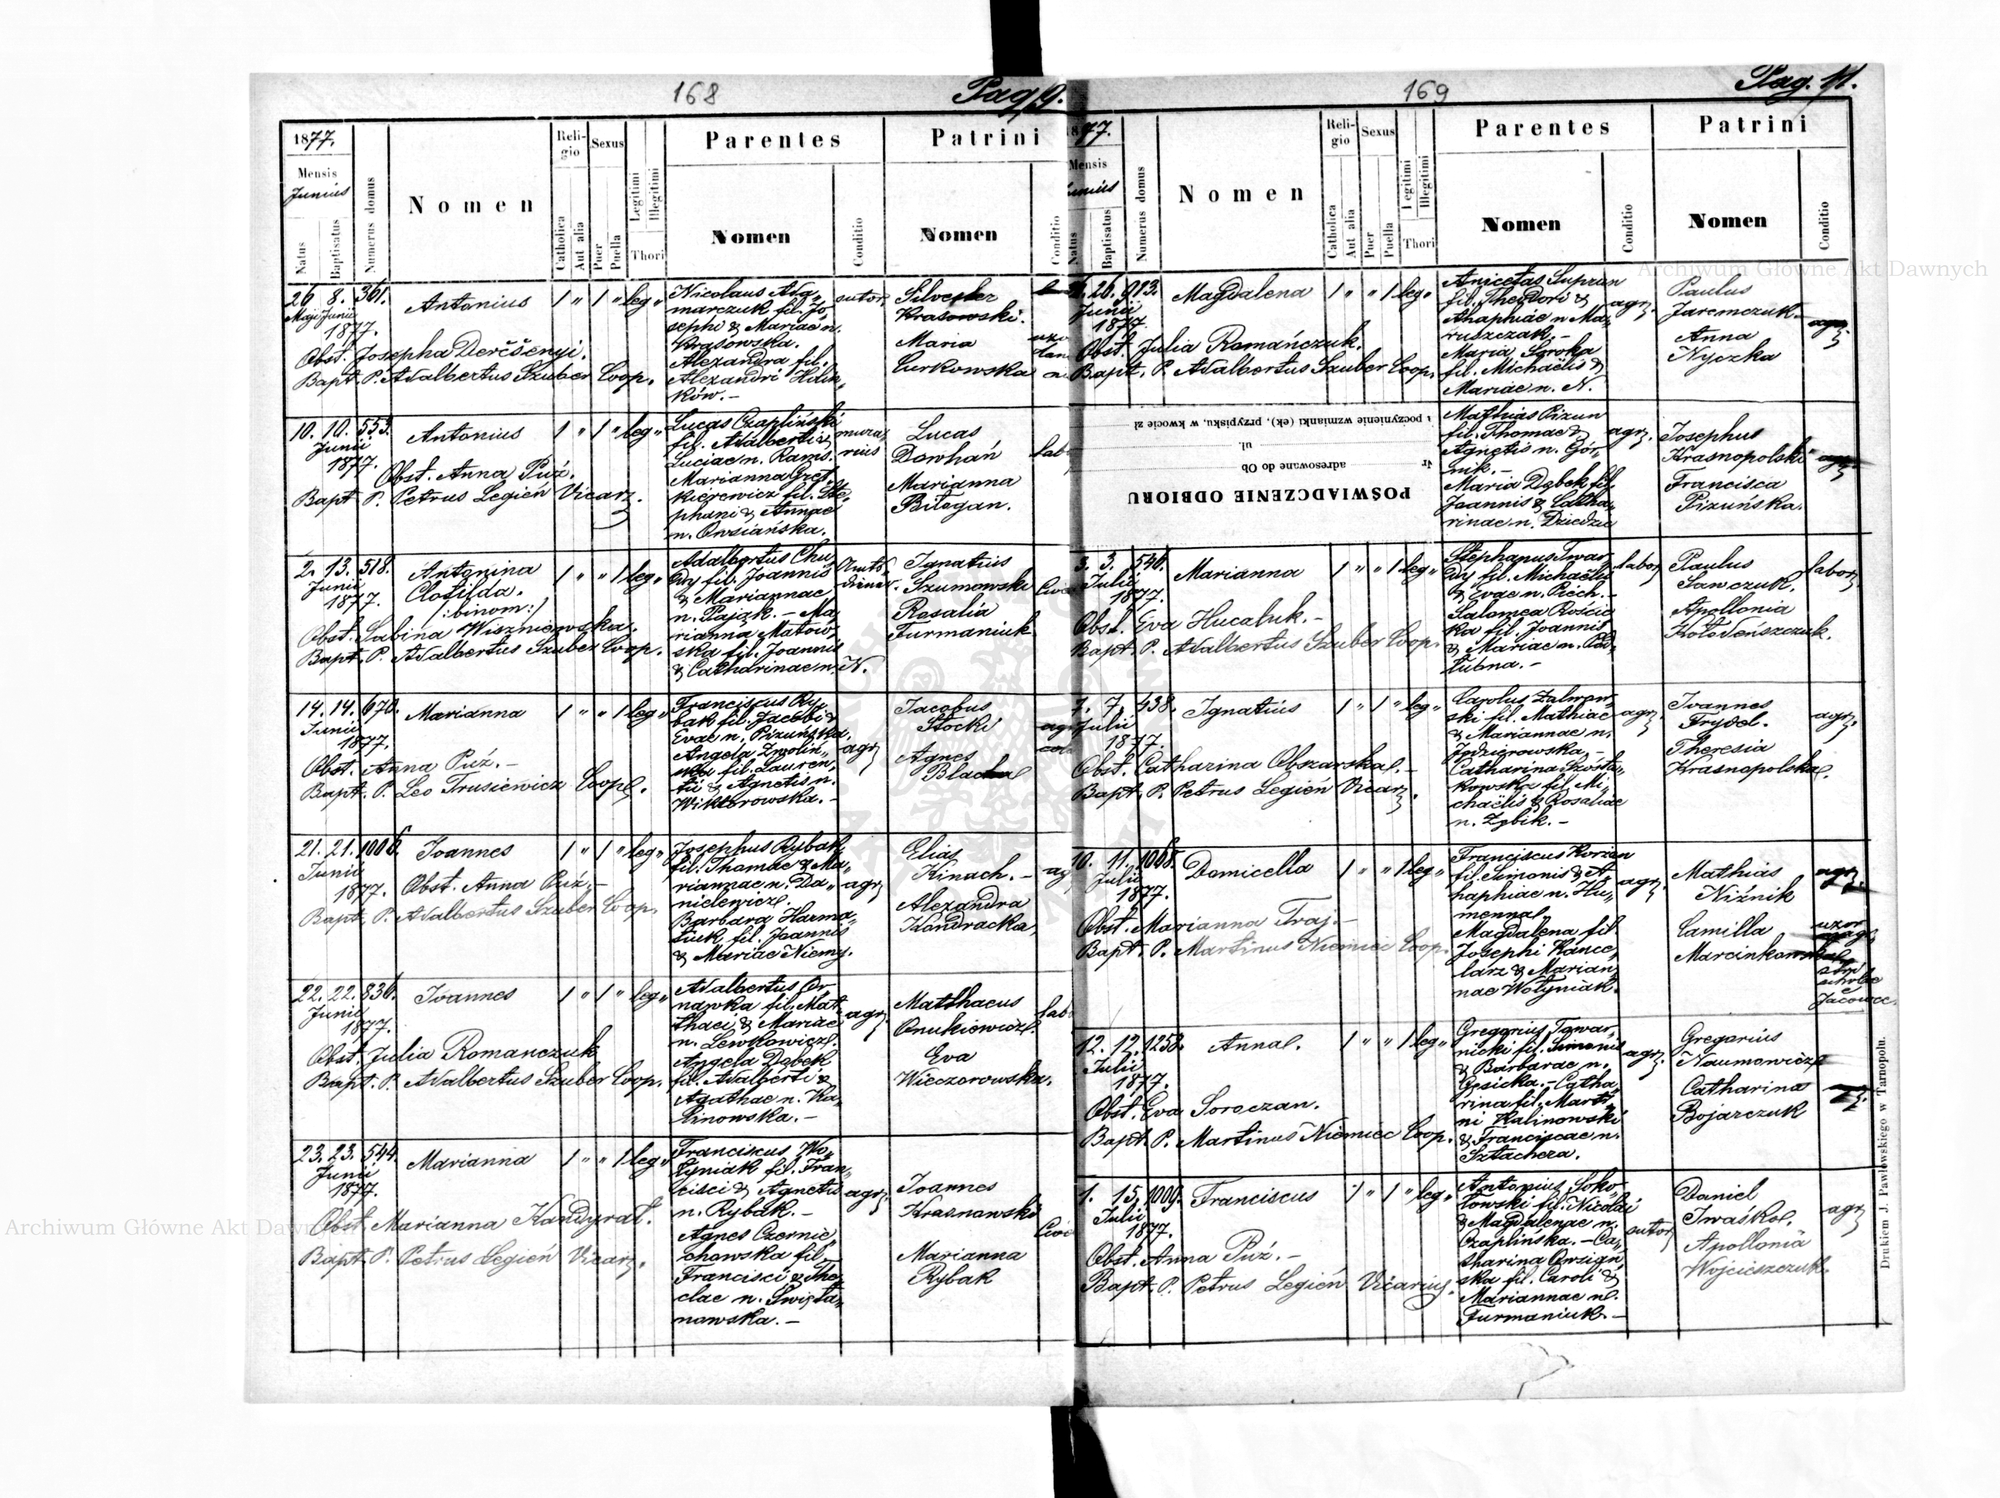 168
Pag. 9.
1877.
Mensis
Junius
Natus
Baptisatus
Numerus domus
Nomen
Religio
Catholica
Aut alia
Sexus
Puer
Puella
Legitimi
Illegitimi
Thori
Parentes
Nomen
Conditio
Patrini
Nomen
Conditio
26 8. 361.
Maji Junii
1877.
Antonius
leg"
Obst. Josepha
Bapt. P. Adalbertus Szuber Coop.
Nicolaus
marczuk fil. Jo
sephi & Mariae n.
Krasowska.
Alexandra fil.
Alexandri
ków. –
sutor
Silvester
Krasowski.
Maria
Curkowska
10. 10. 553.
Junii
1877.
Antonius
leg"
Obst. Anna Puź.
Bapt. P. Petrus Legień Vicar.
Lucas Czapliński
fil. Adalberti &
Luciae n.
Marianna
kierewicz fil. Ste
phani & Annae
n. Owsiańska.
mura
rius
Lucas
Dowhań
Marianna
Bilegan.
2. 13. 518.
Junii
1877.
Antonina
Clotilda.
:binom:)
leg"
Obst. Sabina Wiszniewska.
Bapt. P. Adalbertus Szuber Coop.
Adalbertus Chu
dy fil. Joannis
& Mariannae
n. Pająk. – Ma
rianna
ska fil. Joannis
& Catharinae n. N.
Ignatius
Szumowski
Rosalia
Furmaniuk
14. 14. 670.
Junii
1877.
Marianna
leg"
Obst. Anna Puź. –
Bapt. P. Leo Trusiewicz Coop.
Franciscus Ry
bak fil. Jacobi &
Evae n. Pizuńska.
Angela
fil. Lauren
tii & Agnetis n.
Wiktorowska. –
agr.
Jacobus
Stocki
Agnes
Blacha
21. 21. 1006.
Junii
1877.
Joannes
leg"
Obst. Anna Puź. –
Bapt. P. Adalbertus Szuber Coop.
Josephus Rybak
fil. Thomae & Ma
riannae n. Da
nielewicz.
Barbara Harma
fil. Joannis
& Mariae
agr.
Elias
Kinach. –
Alexandra
Kondracka
22. 22. 836.
Junii
1877.
Joannes
leg"
Obst. Julia Romanczuk
Bapt. P. Adalbertus Szuber Coop.
Adalbertus Or
nawka fil. Mat
thaei & Mariae
n. Lewkowicz.
Angela Dąbek
fil. Adalberti &
Agathae n. Ka
linowska. –
agr.
Matthaeus
Onukiewicz.
Eva
Wieczorowska.
23. 23. 544.
Junii
1877.
Marianna
leg"
Obst. Marianna Kondyrat.
Bapt. P. Petrus Legień Vicar.
Franciscus Wo
łyniak fil. Fran
cisci & Agnetis
n. Rybak. –
Agnes Czernie
chowska fil.
Francisci & The
clae n. Święta
nowska. –
agr.
Joannes
Krasnowski
Marianna
Rybak
169
Pag. 11.
77.
Mensis
Natus
Baptisatus
Numerus domus
Nomen
Religio
Catholica
Aut alia
Sexus
Puer
Puella
Legitimi
Illegitimi
Thori
Parentes
Nomen
Conditio
Patrini
Nomen
Conditio
26. 913.
Junii
1877.
Magdalena
leg"
Obst. Julia Romańczuk.
Bapt. P. Adalbertus Szuber Coop.
Anicetus Suprun
fil. Theodori &
Ahaphiae n. Ma
ruszczak. –
Maria Soroka
fil. Michaëlis &
Mariae n. N.
agr.
Paulus
Jaremczuk.
Anna
Nyczka
agr.
POŚWIADCZENIE ODBIORU
adresowane do Ob
ul
poczynienie wzmianki (ek), przypisku, w kwocie zł
Mathias Pizun
fil. Thomae &
Agnetis n. Gór
nik. –
Maria Dąbek fil.
Joannis & Catha
rinae n. Dziedzic
agr.
Josephus
Krasnopolski
Francisca
Pizuńska.
agr.
3. 3. 546.
Julii
1877.
Marianna
leg"
Obst. Eva Hucaluk. –
Bapt. P. Adalbertus Szuber Coop.
Stephanus Twar
dy fil. Michaëlis
& Evae n. Piech. –
Salomea Roście
ka fil. Joannis
& Mariae n. Pod
łubna. –
labor.
Paulus
Sawczuk.
Apollonia
Kołodeńszczuk.
labor.
7. 7. 438.
Julii
1877.
Ignatius
leg"
Obst. Catharina Obszarska. –
Bapt. P. Petrus Legień Vicar.
Carolus Zalew
ski fil. Mathiae
& Mariannae n.
Catharina
kowska fil. Mi
chaëlis & Rosaliae
n. Zybik. –
agr.
Joannes
Frydel.
Theresia
Krasnopolska.
agr.
10. 11. 1068.
Julii
1877.
Domicella
leg"
Obst. Marianna Traj. –
Bapt. P. Martinus Niemiec Coop.
Franciscus
fil. Simonis & A
haphiae n. Hu
menna.
Magdalena fil.
Josephi Kance
larz & Marian
nae Wołyniak.
agr.
Mathias
Niźnik
Camilla
Marcinkowska
agr.
uxor
12. 12. 1253.
Julii
1877.
Anna.
leg"
Obst. Eva Soroczan.
Bapt. P. Martinus Niemiec Coop.
Gregorius Towar
nicki fil. Simonis
& Barbarae n.
Gęsicka. – Catha
rina fil. Marti
ni Kalinowski
& Franciscae n.
Sztachera.
agr.
Gregorius
Naumowicz
Catharina
Bojarczuk
1. 15. 1009.
Julii
1877.
Franciscus
leg"
Obst. Anna Puź. –
Bapt. P. Petrus Legień Vicarius.
Antonius Soko
łowski fil. Nicolai
& Magdalenae n.
Czaplińska. – Ca
tharina Owsiań
ska fil. Caroli &
Mariannae n.
Furmaniuk. –
sutor
Daniel
Iwaśko.
Apollonia
Wojcieszczuk.
agr.
Drukiem J. Pawłowskiego w Tarnopolu.
Archiwum Główne Akt Dawnych
Archiwum Główne Akt Dawnych